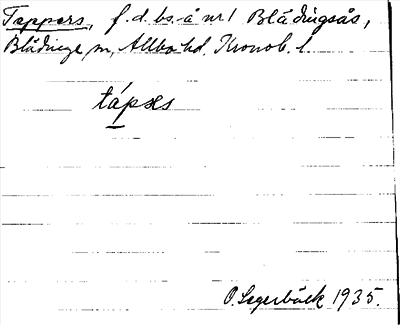 Tappers, f.d. bs. å nr 1 Blädingsås,
Blädinge sn, Allbo hd. Kronob. l.
tápæs
O. Segerbäck 1935.